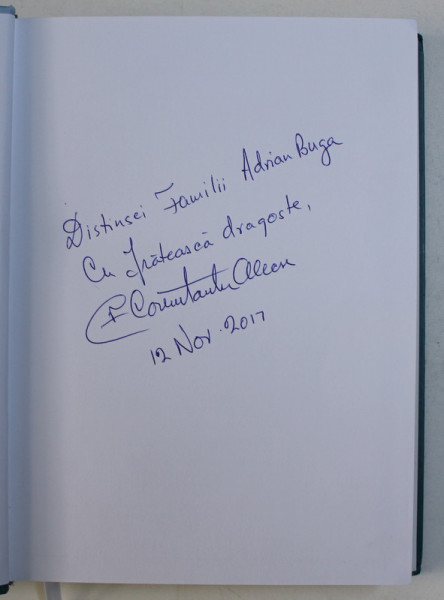 Distinsei Familii Adrian Buga
Cu frățească dragoste,
Constantin
12 Nov. 2017